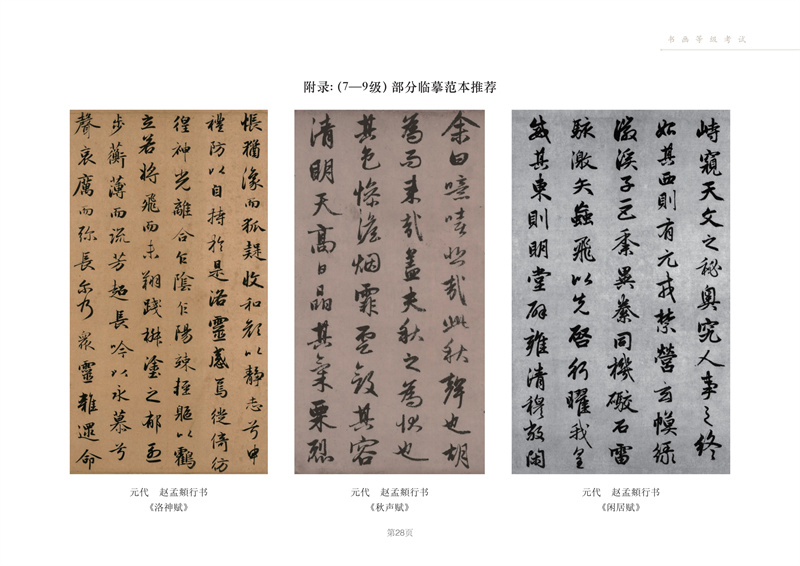 书画等级考试
附录:(7—9级) 部分临摹范本推荐
悵猶豫而狐疑收和顔以靜志兮申
禮防以自持於是洛靈感焉徙倚彷
徨神光離合乍陰乍陽竦輕軀以鶴
立若將飛而未翔踐椒塗之郁烈
步蘅薄而流芳超長吟以永慕兮
聲哀厲而弥長尔乃衆靈雜遝命
元代 赵孟頫行书
《洛神赋》
余曰噫嘻悲哉此秋聲也胡
為而来哉盖夫秋之為状也
其色惨澹烟霏雲斂其容
清明天高日晶其氣栗冽
元代 赵孟頫行书
《秋声赋》
峙窺天文之秘奥究人事之終
始其西則有元戎禁營玄幙緑
徽溪子巨黍異絭同機礮石雷
駭激矢蝱飛以先啓行曜我皇
威其東則明堂辟雍清穆敞閑
元代 赵孟頫行书
《闲居赋》
第28页